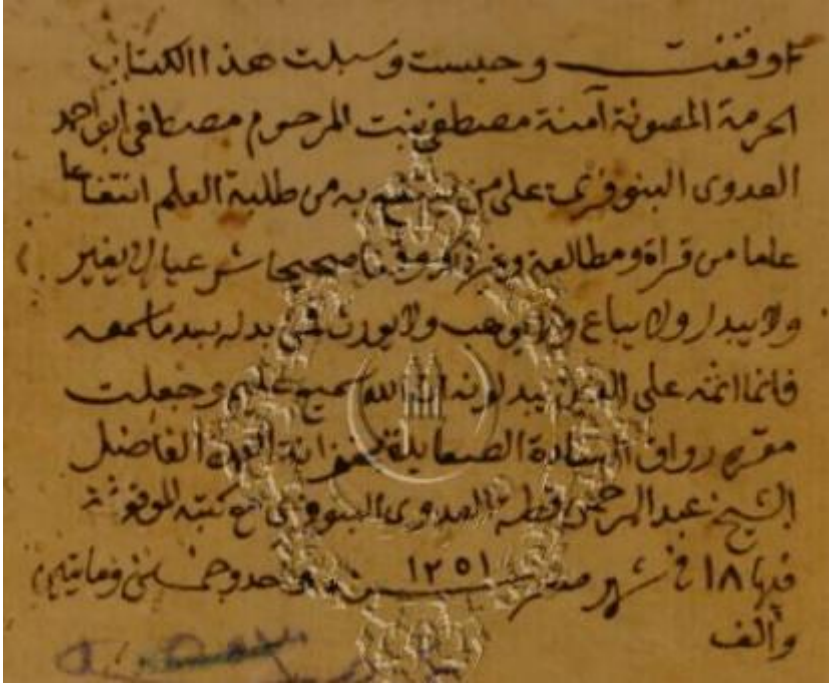 اوقفت وحبست وسبلت هذا الكتاب
الحرمة المصونة آمنة مصطفى بنت المرحوم مصطفى ابو احمد
العدوى البنوفرى على من ينتفع به من طلبة العلم انتفاعا
عاما من قراة ومطالعة وغير ذلك وقفا صحيحا شرعيا لا يغير
ولا يبدل ولا يباع ولا يوهب ولا يورث فمن بدله بعد ما سمعه
فانما اثمه على الذين يبدلونه ان الله سميع عليم وجعلت
مقره رواق السادة الصعايدة بخزانة الفاضل
الشيخ عبد الرحمن قطة العدوى البنوفرى مع كتبه الموقوفة
فيها ١٨ في شهر صفر سنة ١٢٥١ احد وخمسين ومايتين
والف